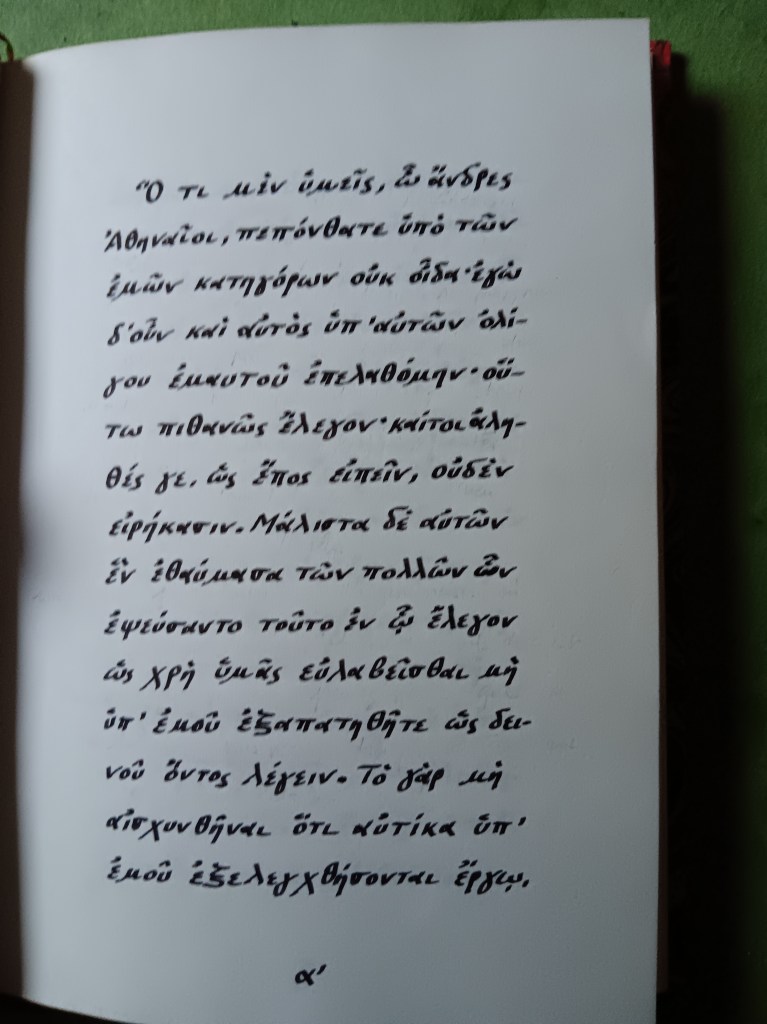 Ὅ τι μὲν ὑμεῖς, ὦ ἄνδρες
Ἀθηναῖοι, πεπόνθατε ὑπὸ τῶν
ἐμῶν κατηγόρων οὐκ οἶδα· ἐγὼ
δ' οὖν καὶ αὐτὸς ὑπ' αὐτῶν ὀλί-
γου ἐμαυτοῦ ἐπελαθόμην· οὕ-
τω πιθανῶς ἔλεγον· καίτοι ἀλη-
θές γε, ὡς ἔπος εἰπεῖν, οὐδὲν
εἰρήκασιν. Μάλιστα δὲ αὐτῶν
ἓν ἐθαύμασα τῶν πολλῶν ὧν
ἐψεύσαντο τοῦτο ἐν ᾧ ἔλεγον
ὡς χρὴ ὑμᾶς εὐλαβεῖσθαι μὴ
ὑπ' ἐμοῦ ἐξαπατηθῆτε ὡς δει-
νοῦ ὄντος λέγειν. Τὸ γὰρ μὴ
αἰσχυνθῆναι ὅτι αὐτίκα ὑπ'
ἐμοῦ ἐξελεγχθήσονται ἔργῳ,
α'